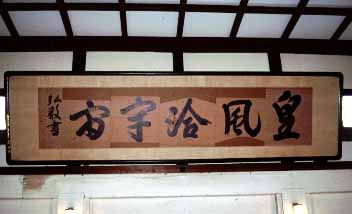 皇風洽宇宙
弘毅書